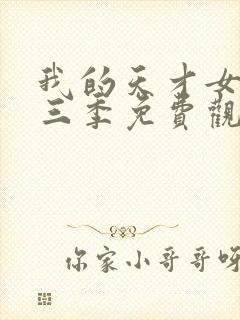 我的天才女
三季免費觀
你家小哥哥呀